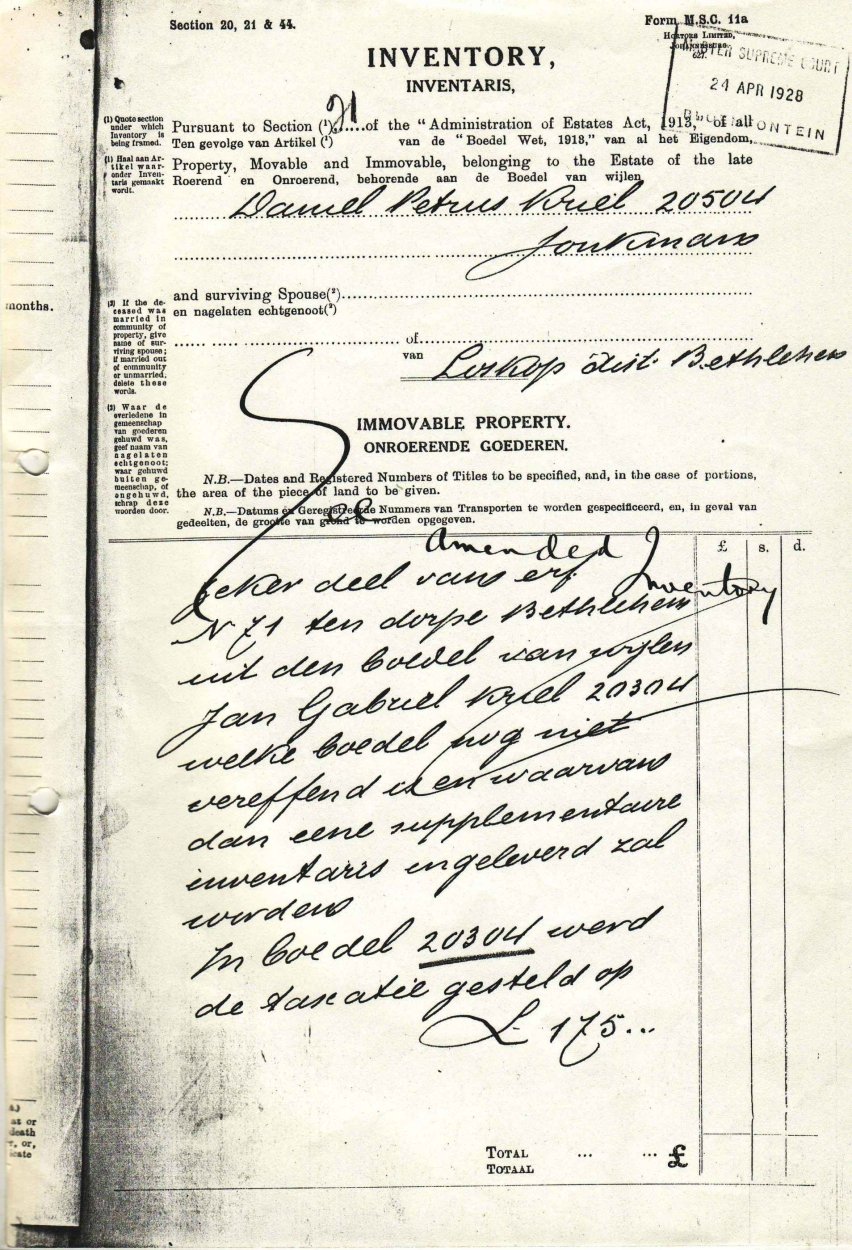 Section 20, 21 & 44.
Form M.S.C. 11a
HORTORS LIMITED,
JOHANNESBURG.
MASTER SUPREME COURT
24 APR 1928
BLOEMFONTEIN
INVENTORY,
INVENTARIS,
(1) Quote section
under which
Inventory is
being framed.
(1) Haal aan Ar-
tikel waar-
onder Inven-
taris gemaakt
wordt.
Pursuant to Section (¹) 21 of the "Administration of Estates Act, 1913," of all
Ten gevolge van Artikel (¹) van de "Boedel Wet, 1913," van al het Eigendom,
Property, Movable and Immovable, belonging to the Estate of the late
Roerend en Onroerend, behorende aan de Boedel van wijlen
Daniel Petrus Kriel 20504
Jonkman
months.
(2) If the de-
ceased was
married in
community of
property, give
name of sur-
viving spouse;
if married out
of community
or unmarried,
delete these
words.
(2) Waar de
overledene in
gemeenschap
van goederen
gehuwd was,
geef naam van
nagelaten
echtgenoot;
waar gehuwd
buiten ge-
meenschap, of
ongehuwd,
schrap deze
woorden door.
and surviving Spouse(²)
en nagelaten echtgenoot(²)
of
van Loskop dist. Bethlehem
IMMOVABLE PROPERTY.
ONROERENDE GOEDEREN.
N.B.—Dates and Registered Numbers of Titles to be specified, and, in the case of portions,
the area of the piece of land to be given.
N.B.—Datums en Geregistreerde Nummers van Transporten te worden gespecificeerd, en, in geval van
gedeelten, de grootte van grond te worden opgegeven.
£ s. d.
See amended Inventory
Zeker deel van erf
N 71 ten dorpe Bethlehem
uit den boedel van wijlen
Jan Gabriel Kriel 20304
welke boedel nog niet
vereffend is en waarvan
dan eene supplementaire
inventaris ingeleverd zal
worden
In boedel 20304 werd
de taxatie gesteld op
£ 175...
TOTAL ... ... £
TOTAAL
as or
death
, or,
icate